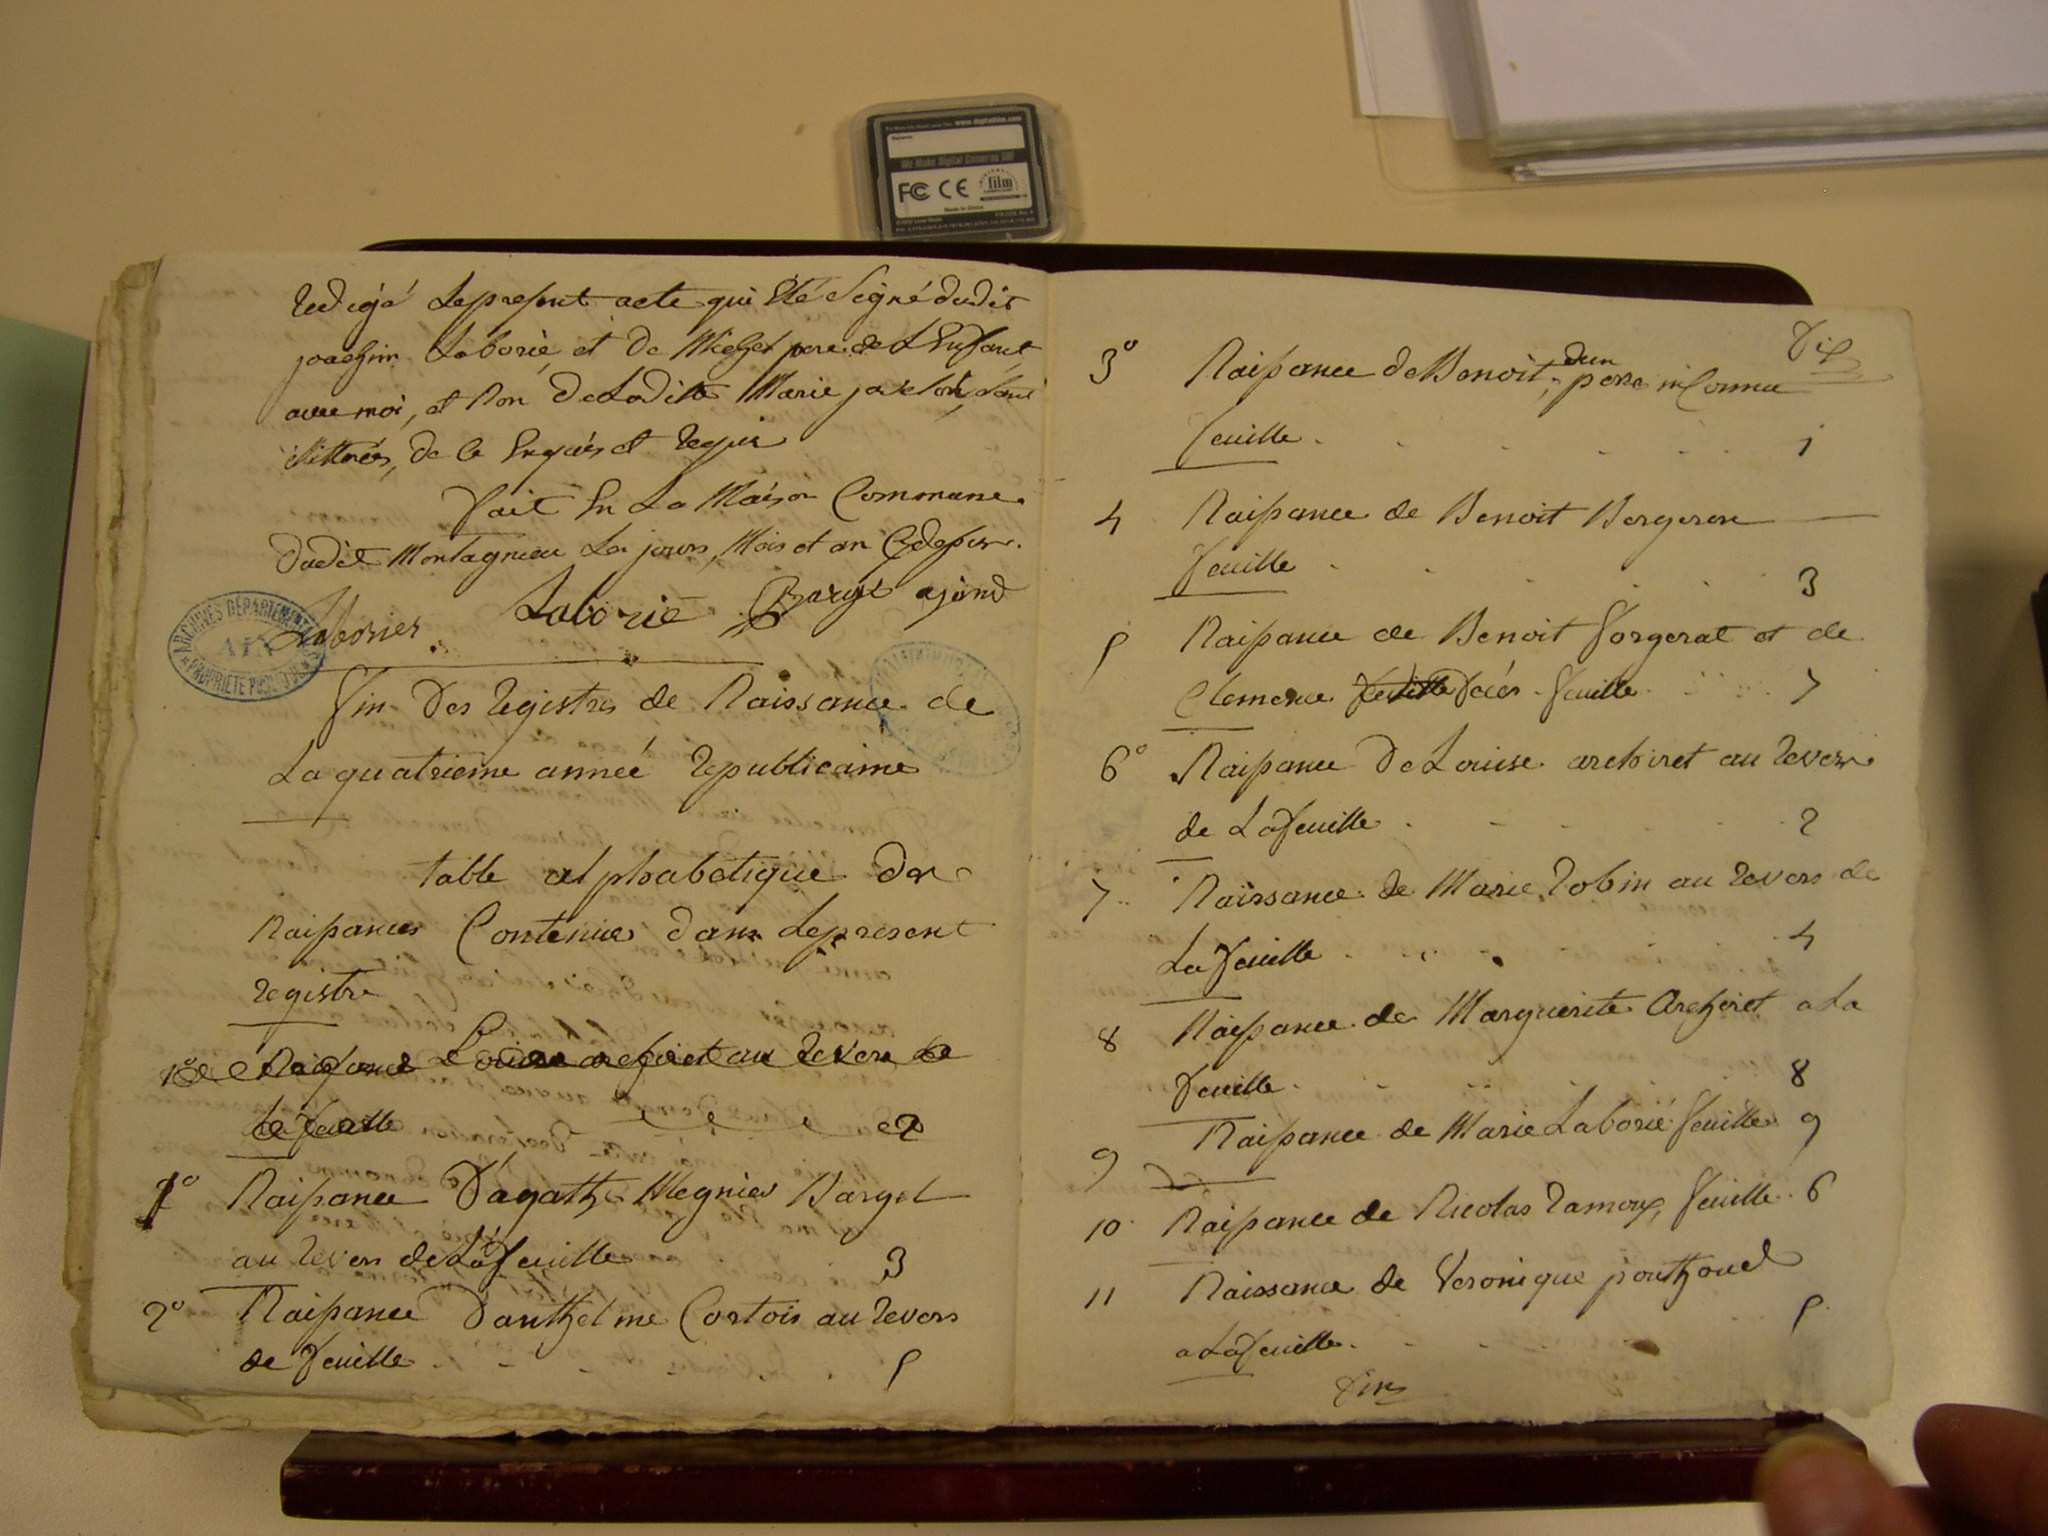 www.digitalfilm.com
We Make Digital Cameras
FC CE film
Made in China
redigé Le present acte qui Eté Signé dudit
joachim Laborié, et de Michel pere de L'Enfant
avec moi, et Non De Laditte Marie
illittrées, de ce Enquis et requis
fait En La Maison Commune
dudit Montagnieu Les jours, Mois et an Cydessus.
Laborier Laborié Barget ajend
ARCHIVES DÉPARTEMENTALES
AIN
PROPRIÉTÉ PUBLIQUE
fin Des registres de Naissance de
La quatrieme année republicaine
table alphabetique Des
Naissances Contenues dans Le present
registre
Naissance Louise archiret au revers de
La feuille 2
1º Naissance D'agathe Megnier Barget
au revers de La feuille 3
2º Naissance D'anthelme Cortois au revers
de feuille 5
Dix
3º Naissance de Benoit, d'un pere inConnu
feuille 1
4 Naissance de Benoit Bergeron
feuille 3
5 Naissance de Benoit forgerat et de
Clemence feuille 7
6º Naissance De Louise archiret au revers
de La feuille 2
7 Naissance de Marie robin au revers de
La feuille 4
8 Naissance de Marguerite Archiret a La
feuille 8
9 Naissance de Marie Laborié feuille 9
10 Naissance de Nicolas ramoux, feuille 6
11 Naissance de Veronique pouthouel
a La feuille 5
fin